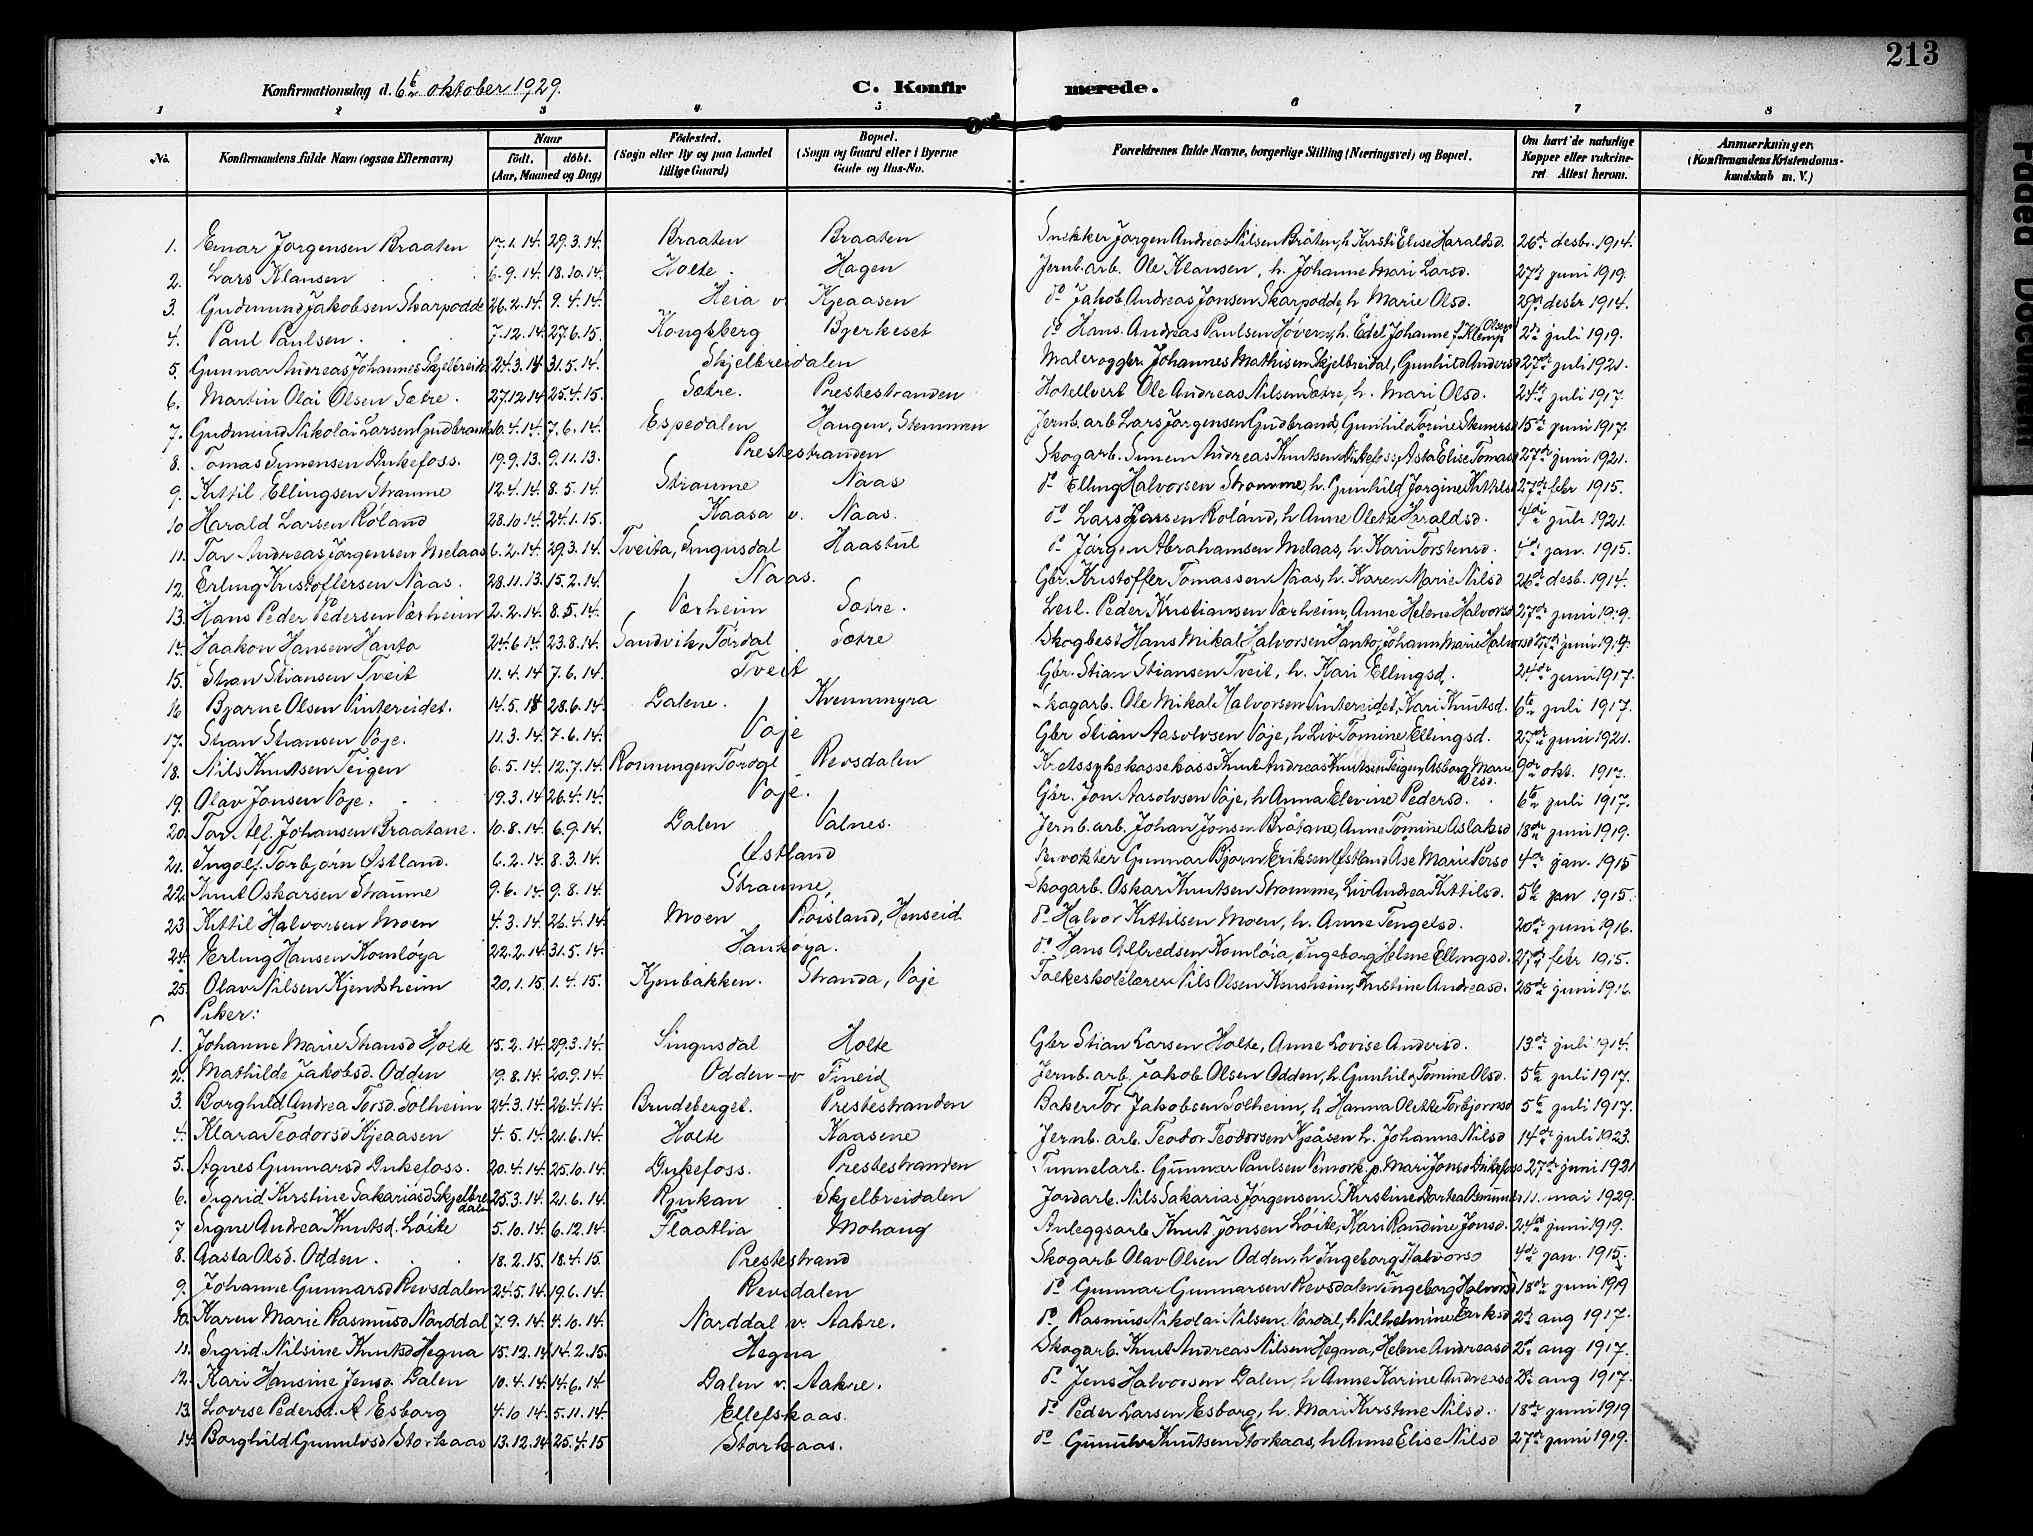 213
Konfirmationsdag d. 6te oktober 1929. C. Konfir merede.
1 2 3 4 5 6 7 8
No. Konfirmandens fulde Navn (ogsaa Efternavn) Naar født. (Aar, Maaned og Dag) døbt. Fødested. (Sogn eller By og paa Landet tillige Gaard) Bopæl. (Sogn og Gaard eller i Byerne Gade og Hus-No. Forældrenes fulde Navne, borgerlige Stilling (Næringsvei) og Bopæl. Om havt de naturlige Kopper eller vakcineret Attest herom. Anmærkninger. (Konfirmandens Kristendomskundskab m. V.)
1. Einar Jørgensen Braaten 17.1.14. 29.3.14. Braaten Braaten Snekker Jørgen Andreas Nilsen Bråten, h. Kirsti Elise Haraldsd. 26de desbr. 1914.
2. Lars Klausen 6.9.14. 18.10.14. Holte Hagen Jernb.arb. Ole Klausen, h. Johanne Mari Larsd. 27de juni 1919.
3. Gudmund Jakobsen Skarpodde 26.2.14. 9.4.14. Heia v. Kjeaasen do Jakob Andreas Jonsen Skarpodde, h. Marie Olsd. 29de desbr 1914.
4. Paul Paulsen 7.12.14. 27.6.15. Kongsberg Bjerkeset do Hans Andreas Paulsen, h. Edel Johanne Olsen f. Klemp 2den juli 1919.
5. Gunnar Andreas Johannes Skjelbreida 24.3.14 31.5.14. Skjelbreidalen Johannes Mathisen Skjelbreidal, Gunhild Andersd 27de juli 1921.
6. Martin Olai Olsen Sætre. 27.12.14 25.4.15. Sætre. Prestestranden Hotellvert Ole Andreas Nilsen Sætre, h. Mari Olsd. 24de juli 1917.
7. Gudmund Nikolai Larsen Gudbrands 10.4.14. 7.6.14. Espedalen Haugen, Stemmen Jernb.arb Lars Jørgensen Gudbrands, Gunhild Torine 15de juni 1917.
8. Tomas Simensen Dukefoss. 19.9.13. 9.11.13. Prestestranden Skogarb. Simen Andreas Knutsen Dukefoss, Åsta Elise Tomasd 27de juni 1921.
9. Kittil Ellingsen Straume 12.4.14. 8.5.14. Straume Naas do Elling Halvorsen Strømme, h. Gunhild Jorgine Kittilsd 27de febr 1915.
10 Harald Larsen Røland 28.10.14. 24.1.15. Kaasa v. Naas. do Lars Larsen Roland, h Anne Olette Haraldsd. 4de juli 1921.
11. Tor Andreas Jørgensen Melaas 6.2.14. 29.3.14. Tveita, Singusdal Haastul do Jørgen Abrahamsen Melaas, h. Kari Torstensd. 4de jan. 1915.
12. Erling Kristoffersen Naas. 28.11.13. 15.2.14. Naas. Gbr. Kristoffer Tomassen Naas, h. Karen Marie Nilsd 26de desb. 1914.
13. Hans Peder Pedersen Værheim 2.2.14. 8.5.14. Værheim Sætre. Leil. Peder Kristiansen Værheim, Anne Helene Halvorsd 27de juni 1919.
14. Haakon Hansen Hanto 24.6.14. 23.8.14. Sandvik, Tørdal Sætre Skogbest Hans Mikal Halvorsen Hanto, Johann Marie Halvorsd 27de juni 1919.
15. Stian Stiansen Tveit 11.4.14 7.6.14. Tveit Gbr. Stian Stiansen Tveit, h. Kari Ellingsd. 24de juni 1917.
16 Bjarne Olsen Vintereidet. 14.5.14 28.6.14. Dalene. Kvennmyra Skogarb. Ole Mikal Halvorsen Vintereidet, Kari Knutsd. 6te juli 1917.
17. Stian Stiansen Voje. 11.3.14. 7.6.14. Voje Gbr Stian Aasolvsen Voje, h Liv Tomine Ellingsd. 27de juni 1921.
18. Nils Knutsen Teigen 6.5.14. 12.7.14. Ronningen Tørdal Revsdalen Kretssykekassekass Knut Andreas Knutsen Teigen, Asborg Marie Olsd. 9de okt. 1917.
19. Olav Jonsen Voje. 19.3.14 26.4.14. Voje. Gbr. Jon Aasolvsen Voje, h Anna Elevine Pedersd. 6te juli 1917.
20. Tor Alf. Johansen Braatane. 10.8.14. 6.9.14. Dalen Valnes. Jernb.arb. Johan Jonsen Bråtane, Anne Tomine Aslaksd 18de juni 1919.
21. Ingolf Torbjørn Østland. 6.2.14. 8.3.14. Østland Gunnar Bjørn Eriksen Østland Åse Marie Persd 4de jan. 1915
22. Knut Oskarsen Straume 9.6.14. 9.8.14. Straume, Skogarb. Oskar Knutsen Strømme, Liv Andrea Kittilsd. 5te jan 1915.
23. Kittil Halvorsen Moen 4.3.14. 26.4.14. Moen Roisland, Henseid do Halvor Kittilsen Moen, h. Anne Tengelsd. 20de juni 1916.
24. Erling Hansen Komløya 22.2.14. 31.5.14. do Hans Alfredsen Komløia, Ingeborg Helene Ellingsd. 27de febr 1915.
25. Olav Nilsen Kjendsheim 20.1.15. 1.4.15. Kjenbakken. Stranda, Voje Folkeskolelærer Nils Olsen Kensheim, Kristine Andreasd. 25de juni 1916.
Piker:
1. Johanne Marie Stiansd Holte 15.2.14. 29.3.14. Singusdal Holte Gbr Stian Larsen Holte, Anne Lovise Andersd. 13de juli 1914.
2. Mathilde Jakobsd. Odden 19.8.14. 20.9.14. Odden v Fineid Jernb.arb. Jakob Olsen Odden, h. Gunhild Tomine Olsd. 5te juli 1917.
3. Borghild Andrea Torsd. Solheim 24.3.14. 26.4.14. Brudeberget. Prestestranden Baker Tor Jakobsen Solheim, h Hanna Olette Torbjørnsd 5te juli 1917.
4. Klara Teodorsd Kjeaasen 4.5.14. 21.6.14. Holte Kaasene Jernb. arb. Teodor Teodorsen Kjeåsen h. Johanne Nilsd 14de juli 1923.
5. Agnes Gunnarsd Dukefoss. 20.4.14. 25.10.14. Dukefoss. Prestestranden Tunnelarb. Gunnar Paulsen Vemork p. Mari Jonsd Dukefoss 27de juni 1921
6. Sigrid Kirstine Sakariasd Skjelbreidalen 25.3.14. 21.6.14. Rjukan Skjelbreidalen Jordarb. Nils Sakarias Jørgensen S Kirstine Dortea Asmundsd 11. mai 1929.
7 Signe Andrea Knutsd. Løite 5.10.14. 6.12.14. Flaatlia Mohaug Anleggsarb. Knut Jonsen Løite, Kari Randine Jonsd. 24de juni 1919.
8. Aasta Olsd. Odden. 18.2.15. 18.4.15. Prestestrand Skogarb Olav Olsen Odden, h Ingeborg Halvorsd 4de jan. 1915.
9. Johanne Gunnarsd Revsdalen 24.5.14. 19.6.14. Revsdalen do Gunnar Gunnarsen Revsdalen Ingeborg Halvorsd 18de juni 1919
10. Karen Marie Rasmusd Narddal 7.9.14. 4.10.14. Narddal v. Aakre. do Rasmus Nikolai Nilsen Nordal, h Vilhelmine Eriksd 2den aug 1917.
11. Sigrid Nilsine Knutsd Hegna 15.12.14 14.2.15. Hegna Skogarb. Knut Andreas Nilsen Hegna, Helene Andreasd 2den aug 1917.
12. Kari Hansine Jensd. Dalen 10.4.14. 14.6.14. Dalen v. Aakre. do Jens Halvorsen Dalen, h Anne Karine Andreasd 2den aug 1917.
13. Lovise Pedersd. Esborg 4.10.14. 5.11.14. Ellefskaas. do Peder Larsen Esborg, h. Mari Kirstine Nilsd. 18de juni 1919
14. Borghild Gunulvsd Storkaas 13.12.14 25.4.15 Storkaas. do Gunulv Knutsen Storkaas, h Anne Elise Nilsd 27de juni 1919.